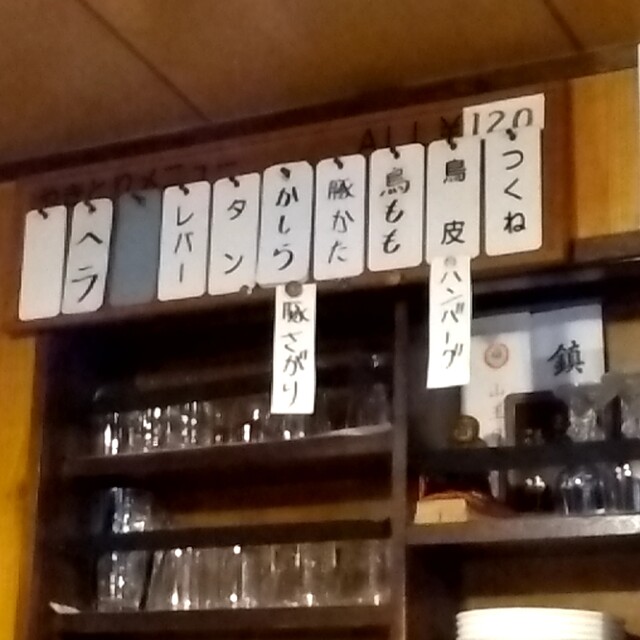 やきとりメニュー
ALL ¥120
つくね
鳥皮
鳥もも
豚かた
かしら
タン
レバー
ヘラ
ハンバーグ
豚さがり
鎮